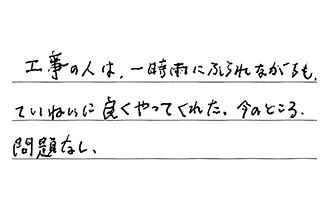 工事の人は、一時雨にふられながらも、
ていねいに良くやってくれた。今のところ、
問題なし、